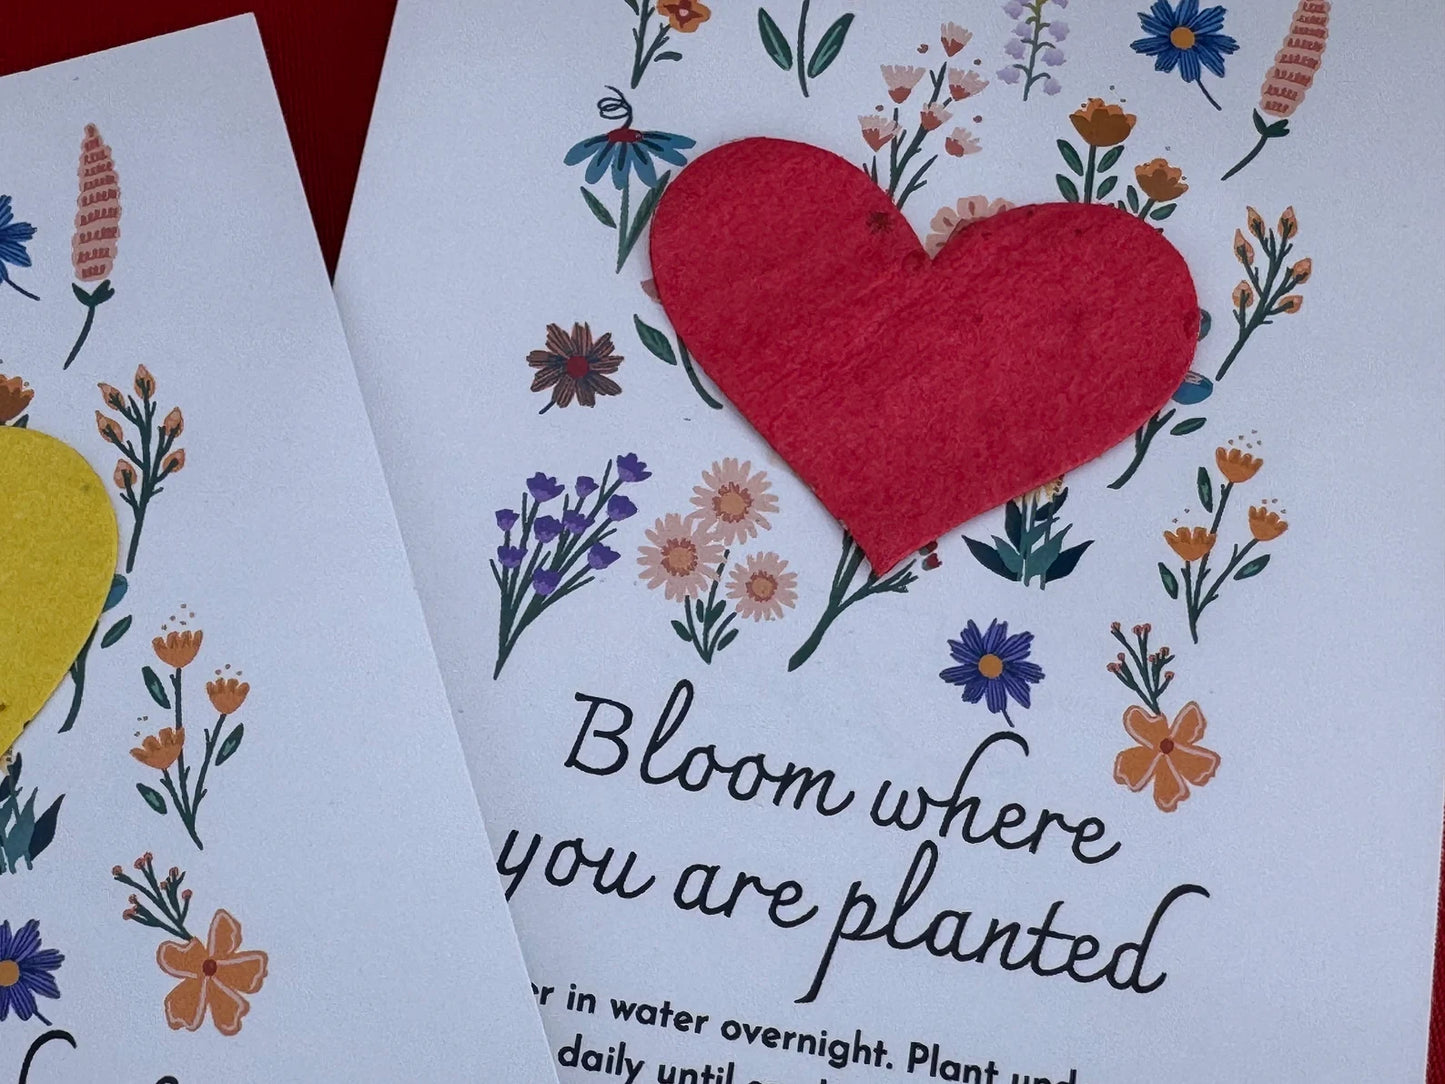 Bloom where
you are planted
in water overnight. Plant
daily until